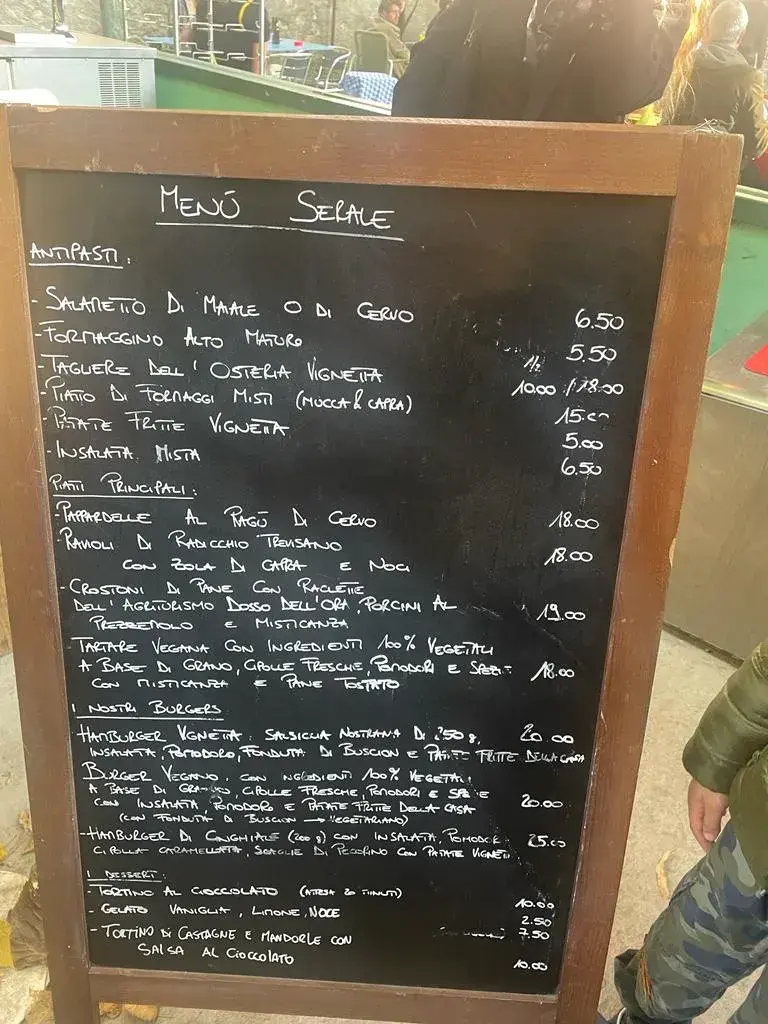 MENÙ SERALE
ANTIPASTI:
- SALAMETTO DI MAIALE O DI CERVO 6.50
- FORMAGGINO ALTO MATURO 5.50
- TAGLIERE DELL'OSTERIA VIGNETTA 1/2 10.00 / 18.00
- PIATTO DI FORMAGGI MISTI (MUCCA & CAPRA) 15.00
- PATATE FRITTE VIGNETTA 5.00
- INSALATA MISTA 6.50
PIATTI PRINCIPALI:
- PAPPARDELLE AL RAGÙ DI CERVO 18.00
- RAVIOLI DI RADICCHIO TREVISANO 18.00
CON ZOLA DI CAPRA E NOCI
- CROSTONI DI PANE CON RACLETTE
DELL'AGRITURISMO DOSSO DELL'ORA, PORCINI AL 19.00
PREZZEMOLO E MISTICANZA
TARTARE VEGANA CON INGREDIENTI 100% VEGETALI
A BASE DI GRANO, CIPOLLE FRESCHE, POMODORI E SPEZIE 18.00
CON MISTICANZA E PANE TOSTATO
I NOSTRI BURGERS
HAMBURGER VIGNETTA: SALSICCIA NOSTRANA DI 250 g, 20.00
INSALATA, POMODORO, FONDUTA DI BUSCION E PATATE FRITTE DELLA CASA
BURGER VEGANO, CON INGREDIENTI 100% VEGETALI
A BASE DI GRANO, CIPOLLE FRESCHE, POMODORI E SPEZIE
CON INSALATA, POMODORO E PATATE FRITTE DELLA CASA 20.00
(CON FONDUTA DI BUSCION → VEGETARIANO)
- HAMBURGER DI CINGHIALE (200 g) CON INSALATA, POMODORO 25.00
CIPOLLA CARAMELLATA, SCAGLIE DI PECORINO CON PATATE VIGNETTA
I DESSERT:
- TORTINO AL CIOCCOLATO (ATTESA 20 MINUTI) 10.00
- GELATO VANIGLIA, LIMONE, NOCE 2.50
7.50
- TORTINO DI CASTAGNE E MANDORLE CON
SALSA AL CIOCCOLATO 10.00